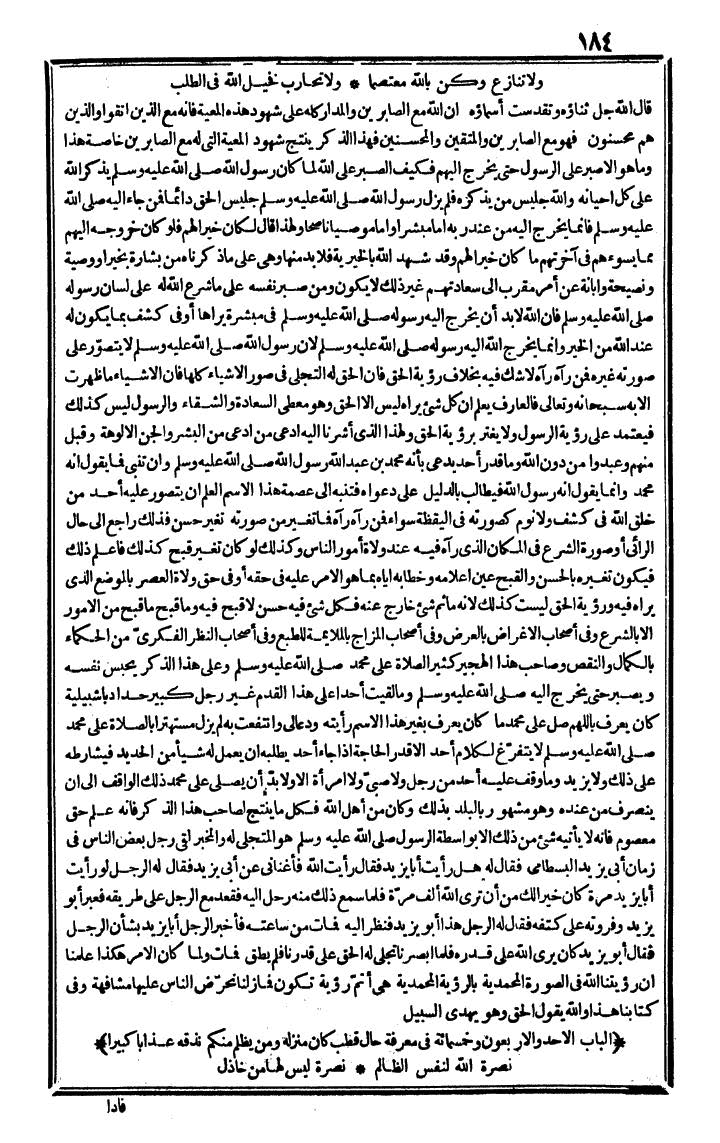 ١٨٤
ولا تنازع وكن بالله معتصما * ولا تحارب فخيل الله فى الطلب
قال الله جل ثناؤه وتقدست أسماؤه ان الله مع الصابرين والمدار كله على شهود هذه المعية فانه مع الذين اتقوا والذين
هم محسنون فهو مع الصابرين والمتقين والمحسنين فهذا الذكر ينتج شهود المعية التى له مع الصابرين خاصة هذا
وما هو الاصبر على الرسول حتى يخرج اليهم فكيف الصبر على الله لما كان رسول الله صلى الله عليه وسلم يذكر الله
على كل أحيانه والله جليس من يذكره فلم يزل رسول الله صلى الله عليه وسلم جليس الحق دائما فمن جاء اليه صلى الله
عليه وسلم فانما يخرج اليه من عند ربه اما مبشرا واما موصيا ناصحا ولهذا قال لكان خيرا لهم فلو كان خروجه اليهم
بما يسوءهم فى آخرتهم ما كان خيرا لهم وقد شهد الله بالخيرية فلابد منها وهى على ما ذكرناه من بشارة بخير أو وصية
ونصيحة وابانة عن أمر مقرب الى سعادتهم غير ذلك لا يكون ومن صبر نفسه على ما شرع الله له على لسان رسوله
صلى الله عليه وسلم فان الله لابد أن يخرج اليه رسوله صلى الله عليه وسلم فى مبشرة يراها أو فى كشف بما يكون له
عند الله من الخير وانما يخرج الله اليه رسوله صلى الله عليه وسلم لان رسول الله صلى الله عليه وسلم لا يتصوّر على
صورته غيره فمن رآه رآه لا شك فيه بخلاف رؤية الحق فان الحق له التجلى فى صور الاشياء كلها فان الاشياء ما ظهرت
الا به سبحانه وتعالى فالعارف يعلم ان كل شئ يراه ليس الا الحق وهو معطى السعادة والشقاء والرسول ليس كذلك
فيعتمد على رؤية الرسول ولا يغتر برؤية الحق ولهذا الذى أشرنا اليه ادعى من ادعى من البشر والجن الالوهة وقبل
منهم وعبدوا من دون الله وما قدر أحد يدعى بأنه محمد بن عبد الله رسول الله صلى الله عليه وسلم وان تنبى فما يقول انه
محمد وانما يقول انه رسول الله فيطالب بالدليل على دعواه فتنبه الى عصمة هذا الاسم العلم ان يتصور عليه أحد من
خلق الله فى كشف ولا نوم كصورته فى اليقظة سواء فمن رآه رآه فما تغير من صورته تغير حسن فذلك راجع الى حال
الرائى أو صورة الشرع فى المكان الذى رآه فيه عند ولاة أمور الناس وكذلك لو كان تغير قبح كذلك فاعلم ذلك
فيكون تغيره بالحسن والقبح عين اعلامه وخطابه اياه بما هو الامر عليه فى حقه أو فى حق ولاة العصر بالموضع الذى
يراه فيه ورؤية الحق ليست كذلك لانه ماثم شئ خارج عنه فكل شئ فيه حسن لا قبح فيه وما قبح ما قبح من الامور
الا بالشرع وفى أصحاب الاغراض بالعرض وفى أصحاب المزاج بالملايمة للطبع وفى أصحاب النظر الفكرىّ من الحكماء
بالكمال والنقص وصاحب هذا الهجير كثير الصلاة على محمد صلى الله عليه وسلم وعلى هذا الذكر يحبس نفسه
ويصبر حتى يخرج اليه صلى الله عليه وسلم وما لقيت أحدا على هذا القدم غير رجل كبير حداد باشبيلية
كان يعرف باللهم صل على محمد ما كان يعرف بغير هذا الاسم رأيته ودعالى وانتفعت به لم يزل مستهترا بالصلاة على محمد
صلى الله عليه وسلم لا يتفرّغ لكلام أحد الاقدر الحاجة اذا جاء أحد يطلبه ان يعمل له شيأ من الحديد فيشارطه
على ذلك ولا يزيد وما وقف عليه أحد من رجل ولا صبىّ ولا امرأة الا ولابدّ أن يصلى على محمد ذلك الواقف الى ان
ينصرف من عنده وهو مشهور بالبلد بذلك وكان من أهل الله فكل ما ينتج لصاحب هذا الذكر فانه علم حق
معصوم فانه لا يأتيه شئ من ذلك الا بواسطة الرسول صلى الله عليه وسلم هو المتجلى له والمخبر لقى رجل بعض الناس فى
زمان أبى يزيد البسطامى فقال له هل رأيت أبا يزيد فقال رأيت الله فأغنانى عن أبى يزيد فقال له الرجل لو رأيت
أبا يزيد مرة كان خيرا لك من أن ترى الله ألف مرّة فلما سمع ذلك منه رحل اليه فقعد مع الرجل على طريقه فعبر أبو
يزيد وفروته على كتفه فقال له الرجل هذا أبو يزيد فنظر اليه فمات من ساعته فأخبر الرجل أبا يزيد بشأن الرجل
فقال أبو يزيد كان يرى الله على قدره فلما أبصرنا تجلى له الحق على قدرنا فلم يطق فمات ولما كان الامر هكذا علمنا
ان رؤيتنا الله فى الصورة المحمدية بالرؤية المحمدية هى أتمّ رؤية تكون فما زلنا نحرّض الناس عليها مشافهة وفى
كتابنا هذا والله يقول الحق وهو يهدى السبيل
﴿الباب الاحد والاربعون وخمسمائة فى معرفة حال قطب كان منزله ومن يظلم منكم نذقه عذابا كبيرا﴾
نصرة الله لنفس الظالم * نصرة ليس لها من خاذل
فاذا